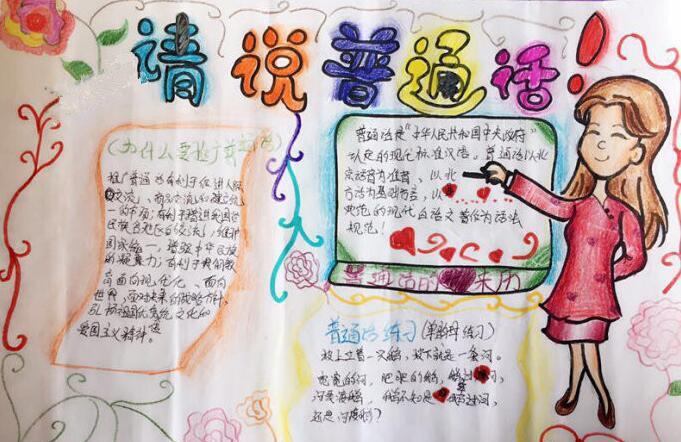 请说普通话!
(为什么要推广普通话)
推广普通话有利于促进人际
交流、商品交流和建立统
一的市场;有利于增进我国各
民族各地区的交流,维护
国家统一,增强中华民族
的凝聚力;有利于我们教
育面向现代化、面向
世界、面对未来的战略方针,
弘扬祖国优秀统文化的
爱国主义精神。
普通话是"中华人民共和国中央政府"
认定的现代标准汉语。普通话以北
京语音为准音、以北
方话为基础方言,以
典范的现代白话文著作为语法
规范!
普通话的来历
普通话练习(单韵母练习)
坡上立着一只鹅,坡下就是一条河。
宽宽的河,肥肥的鹅,鹅过河,
河要渡鹅,鹅不知是鹅过河,
还是河渡鹅?